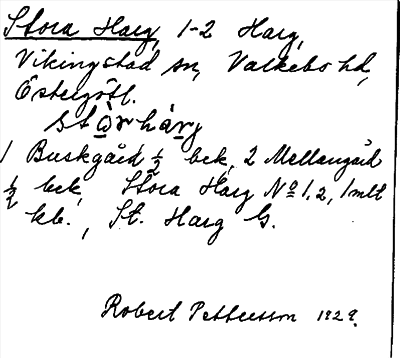 Stora Harg, 1-2 Harg,
Vikingstad sn, Valkebo hd,
Östergötl.
stòrhárg
1 Buskgård ½ bek, 2 Mellangård
½ bek, Stora Harg No 1, 2, 1 mlt
kb., St. Harg G.
Robert Pettersson 1929.